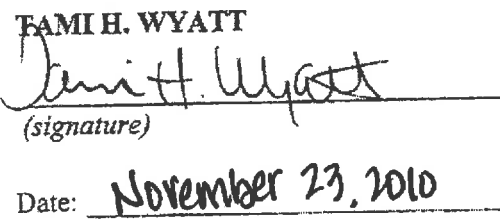 TAMI H. WYATT
Tami H. Wyatt
(signature)
Date: November 23, 2010